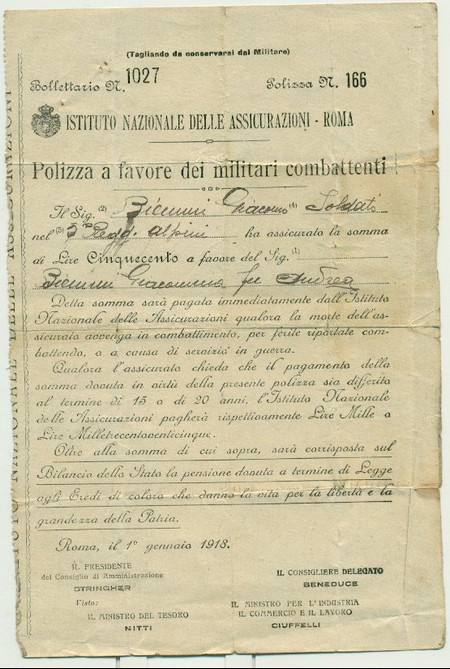 (Tagliando da conservarsi dal Militare)
Bollettario N. 1027 Polizza N. 166
ISTITUTO NAZIONALE DELLE ASSICURAZIONI - ROMA
Polizza a favore dei militari combattenti
Il Sig. (2) Bicinni Giacomo (4) Soldato
nel 5° Regg. Alpini ha assicurato la somma
di Lire Cinquecento a favore del Sig. (1)
Bicinni Giacomina fu Andrea
Detta somma sarà pagata immediatamente dall'Istituto
Nazionale delle Assicurazioni qualora la morte dell'as-
sicurato avvenga in combattimento, per ferite riportate com-
battendo, o a causa di servizio in guerra.
Qualora l'assicurato chieda che il pagamento della
somma dovuta in virtù della presente polizza sia differito
al termine di 15 o di 20 anni, l'Istituto Nazionale
delle Assicurazioni pagherà rispettivamente Lire Mille o
Lire Milletrecentoventicinque.
Oltre alla somma di cui sopra, sarà corrisposta sul
Bilancio dello Stato la pensione dovuta a termine di Legge
agli Eredi di coloro che danno la vita per la libertà e la
grandezza della Patria.
Roma, il 1° gennaio 1918.
IL PRESIDENTE
del Consiglio di Amministrazione
STRINGHER
IL CONSIGLIERE DELEGATO
BENEDUCE
Visto:
IL MINISTRO DEL TESORO
NITTI
IL MINISTRO PER L'INDUSTRIA
IL COMMERCIO E IL LAVORO
CIUFFELLI